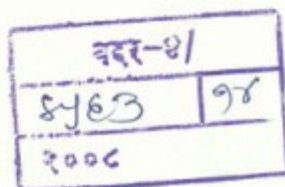 बदर-४/
४५६३ १४
२००८